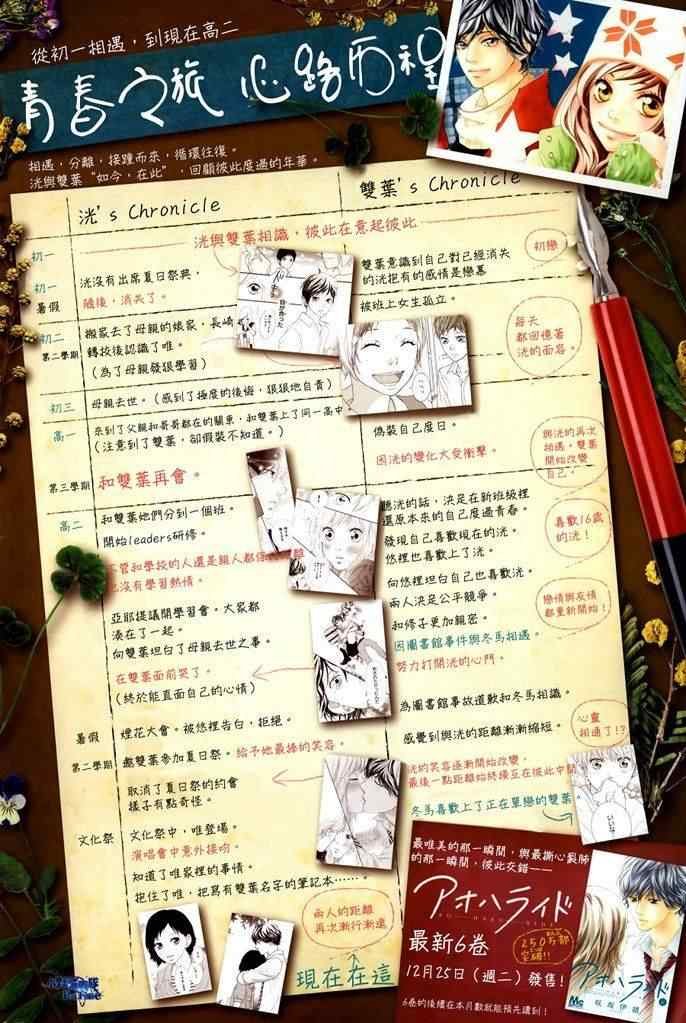 從初一相遇，到現在高二
青春之旅 心路历程
相遇，分離，接踵而來，循環往復。
洸與雙葉“如今，在此”，回顧彼此度過的年華。
洸's Chronicle
雙葉's Chronicle
初一
洸與雙葉相識，彼此在意起彼此
初一
暑假
洸沒有出席夏日祭典，
隨後，消失了。
雙葉意識到自己對已經消失
的洸抱有的感情是戀慕
初戀
被班上女生孤立。
初二
第二學期
搬家去了母親的娘家，長崎
轉校後認識了唯。
（為了母親發狠學習）
每天
都回憶著
洸的面容。
初三
母親去世。（感到了極度的後悔，狠狠地自責）
高一
來到了父親和哥哥都在的關東，和雙葉上了同一高中
（注意到了雙葉，卻假裝不知道。）
偽裝自己度日。
因洸的變化大受衝擊。
與洸的再次
相遇，雙葉
開始改變
自己。
第三學期
和雙葉再會。
高二
和雙葉她們分到一個班。
開始leaders研修。
聽洸的話，決定在新班級裡
還原本來的自己度過青春。
發現自己喜歡現在的洸。
悠裡也喜歡上了洸。
喜歡16歲
的洸！
不管和學校的人還是親人都
也沒有學習熱情。
向悠裡坦白自己也喜歡洸。
兩人決定公平競爭。
和修子更加親密。
因圖書館事件與冬馬相遇。
努力打開洸的心門。
戀情與友情
都重新開始！
亞耶提議開學習會。大家都
湊在了一起。
向雙葉坦白了母親去世之事。
在雙葉面前哭了。
（終於能直面自己的心情）
為圖書館事故道歉和冬馬相識。
暑假
煙花大會。被悠裡告白，拒絕。
感覺到與洸的距離漸漸縮短。
心靈
相通了!?
第二學期
邀雙葉參加夏日祭。給予她最棒的笑容。
洸的笑容逐漸開始改變。
最後一點距離始終橫亙在彼此中間
取消了夏日祭的約會
樣子有點奇怪。
冬馬喜歡上了正在單戀的雙葉。
文化祭
文化祭中，唯登場。
演唱會中意外接吻。
知道了唯家裡的事情。
抱住了唯，把寫有雙葉名字的筆記本……。
兩人的距離
再次漸行漸遠
現在在這
最唯美的那一瞬間，與最撕心裂肺
的那一瞬間，彼此交錯——
アオハライド
最新6卷
250万部
突破!!
12月25日（週二）發售！
6卷的後續在本月數就能預先讀到！
アオハライド
咲坂伊緒